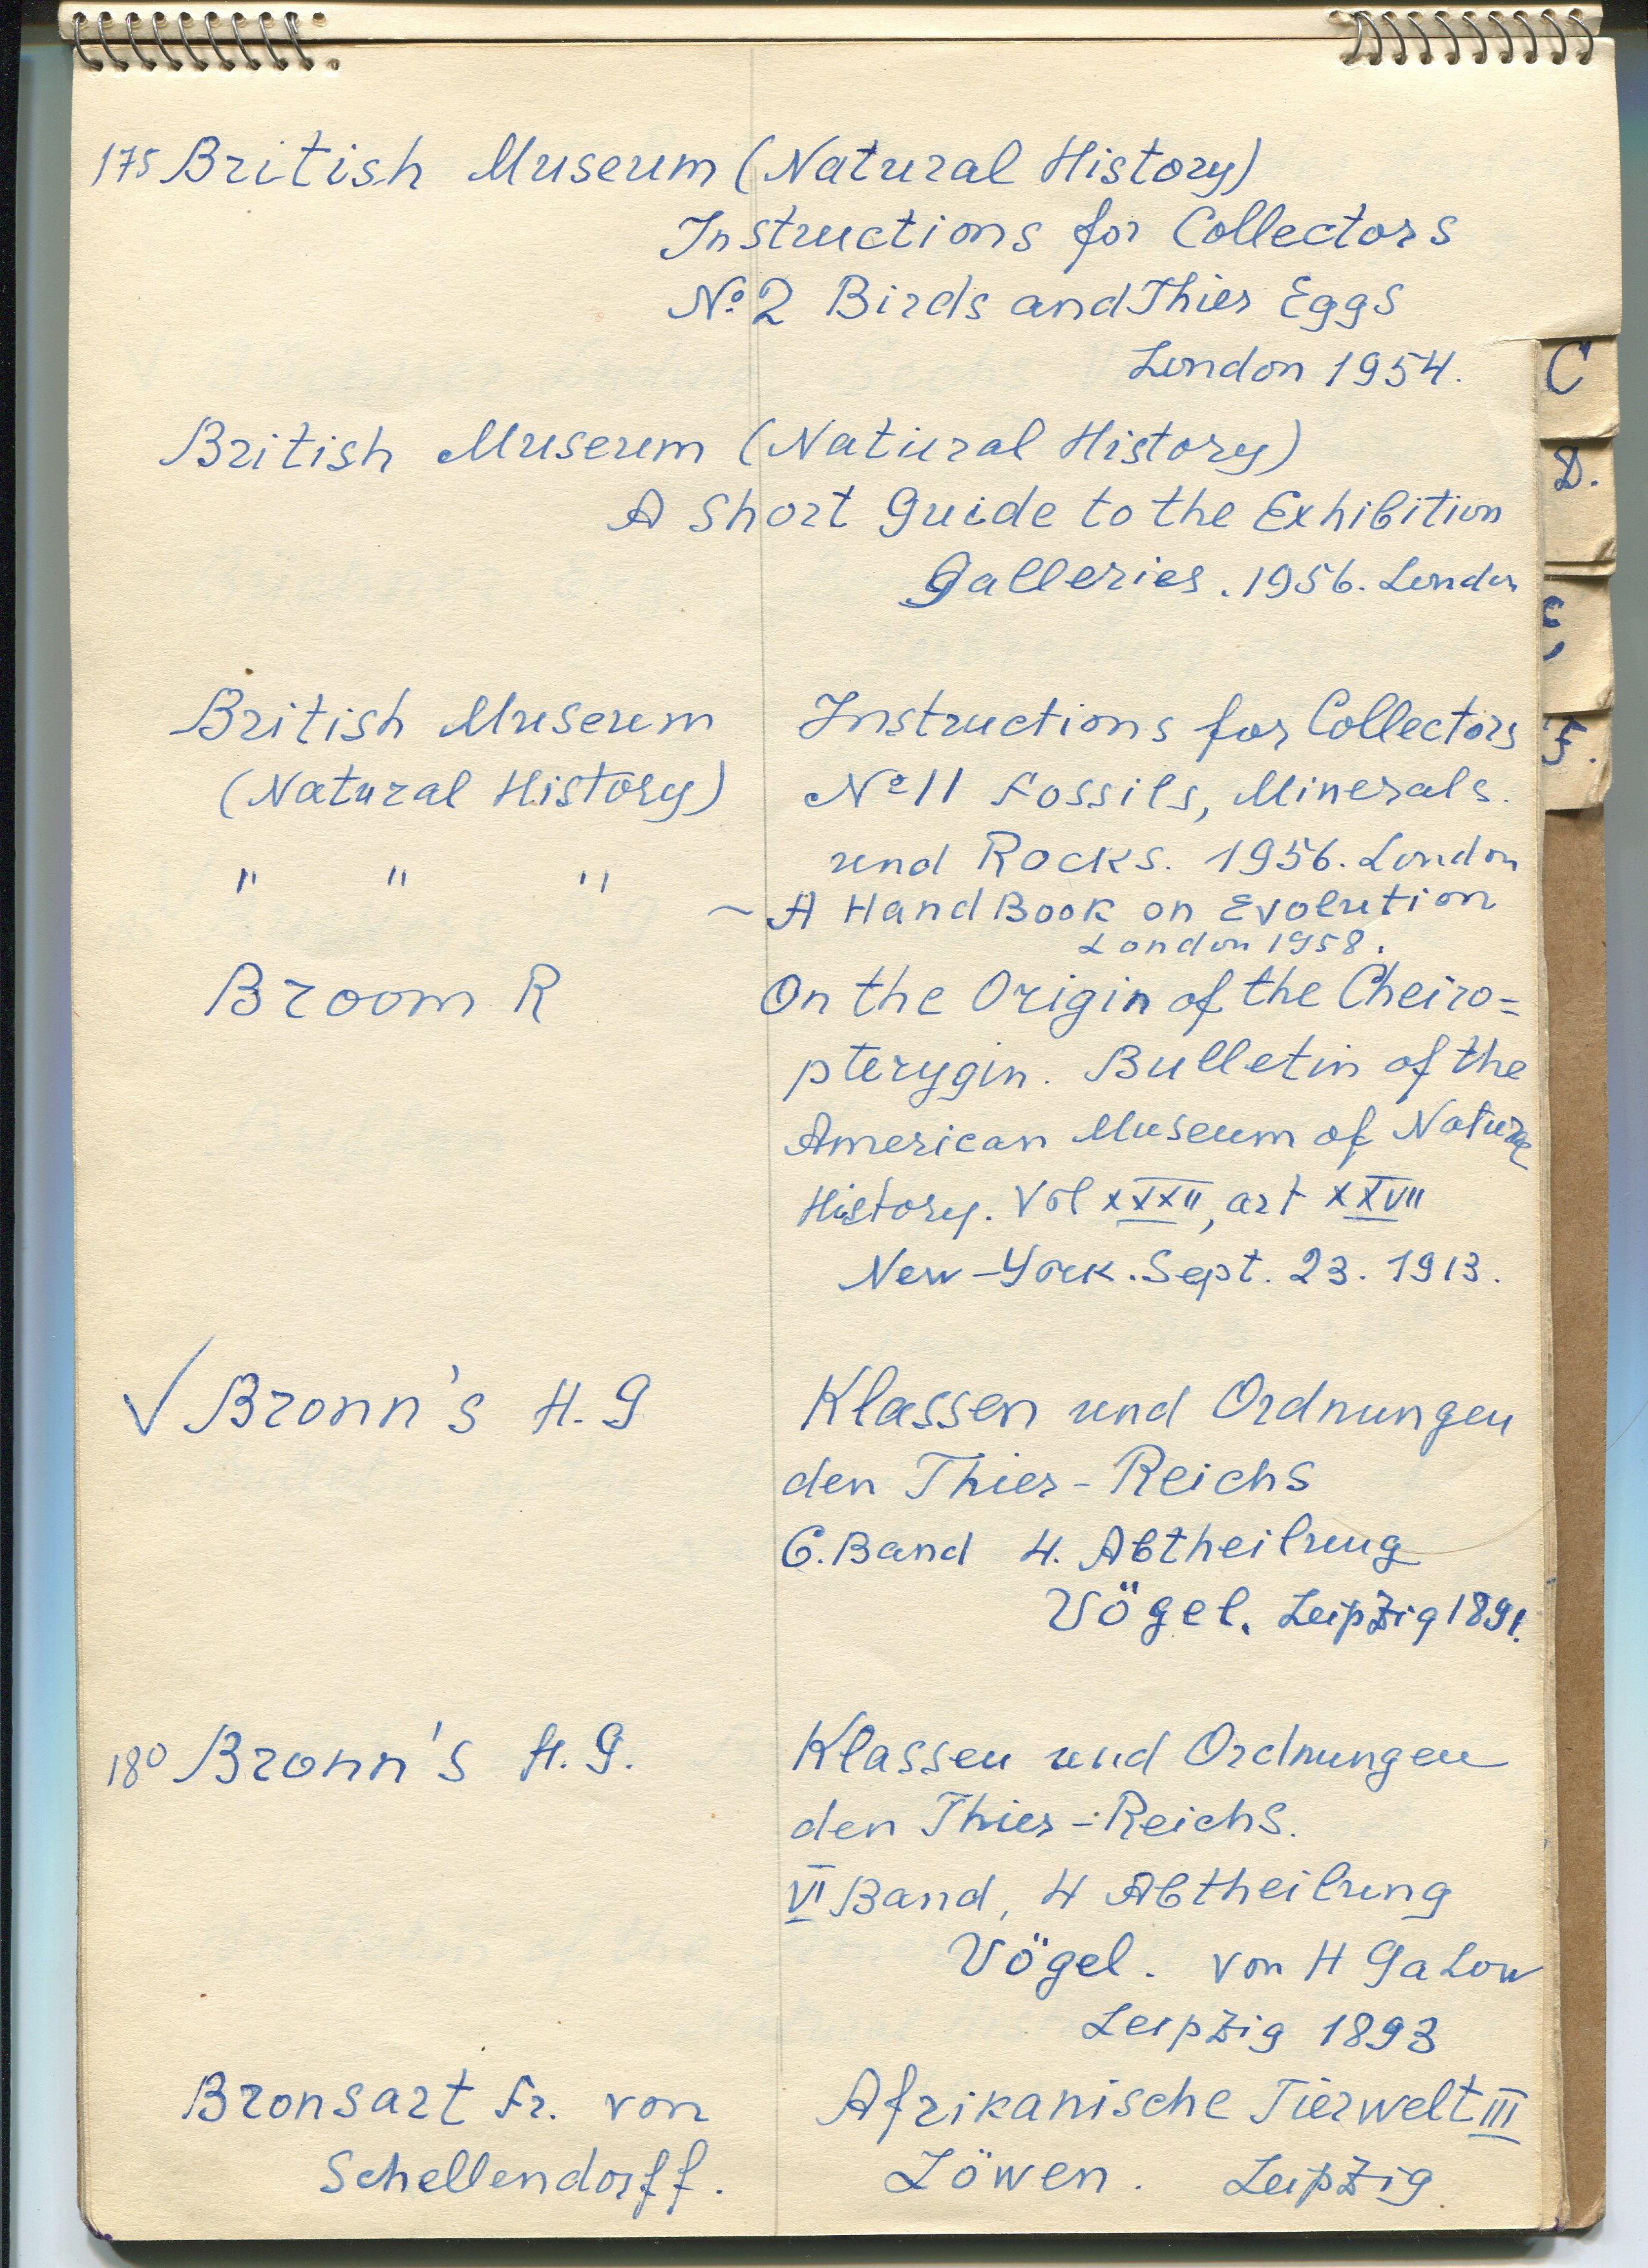 175 British Museum (Natural History)
Instructions for Collectors
№ 2 Birds and Thier Eggs
London 1954.
C
British Museum (Natural History)
D.
A Short Guide to the Exhibition
Galleries. 1956. London
British Museum Instructions for Collectors
F.
(Natural History) № 11 Fossils, Minerals.
und Rocks. 1956. London
" " " ~ A Hand Book on Evolution
London 1958.
Broom R On the Origin of the Cheiro=
pterygin. Bulletin of the
American Museum of Natural
History. Vol XXXII, art XXVII
New-York. Sept. 23. 1913.
√ Bronn's H. G Klassen und Ordnungen
den Thier-Reichs
6. Band 4. Abtheilung
Vögel. Leipzig 1891.
180 Bronn's H. G. Klassen und Ordnungen
den Thier-Reichs.
VI Band, 4 Abtheilung
Vögel. von H Gadow
Leipzig 1893
Bronsart Fr. von Afrikanische Tierwelt III
Schellendorff. Löwen. Leipzig